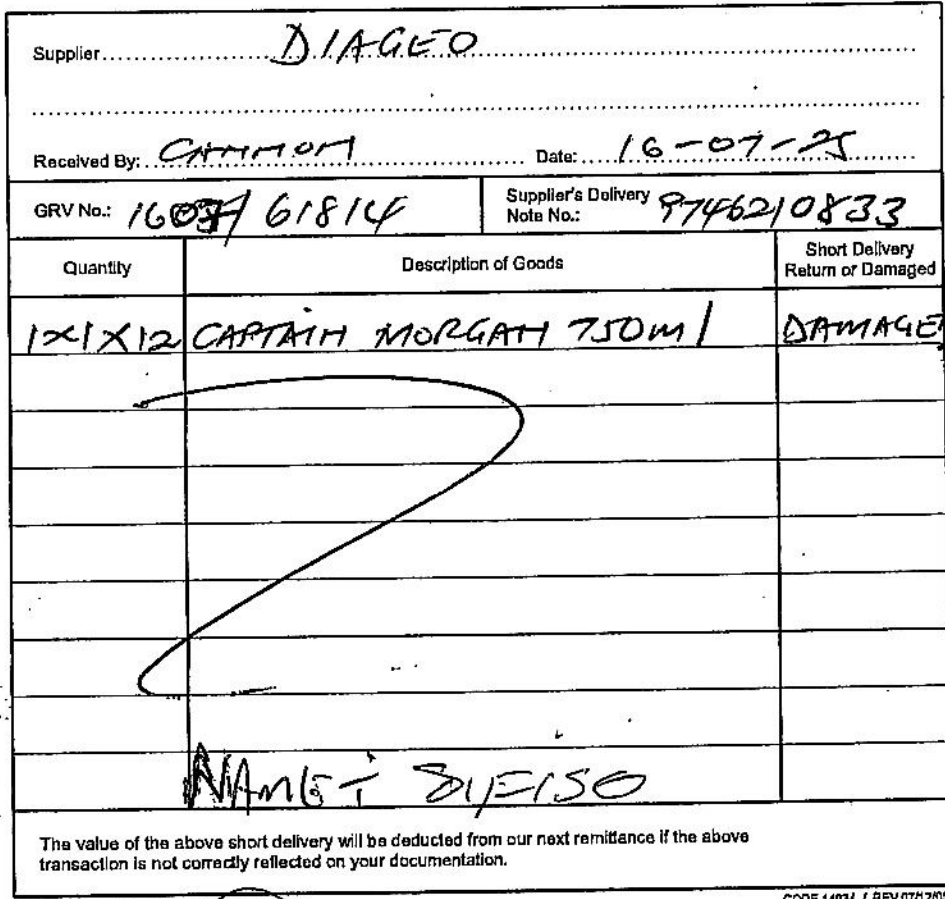 Supplier DIAGEO
Received By: Date: 16-07-25
GRV No.: 61814 Supplier's Delivery Note No.: 9746210833
Quantity Description of Goods Short Delivery Return or Damaged
1x1x12 CAPTAIN MORGAN 750ml DAMAGE
The value of the above short delivery will be deducted from our next remittance if the above
transaction is not correctly reflected on your documentation.